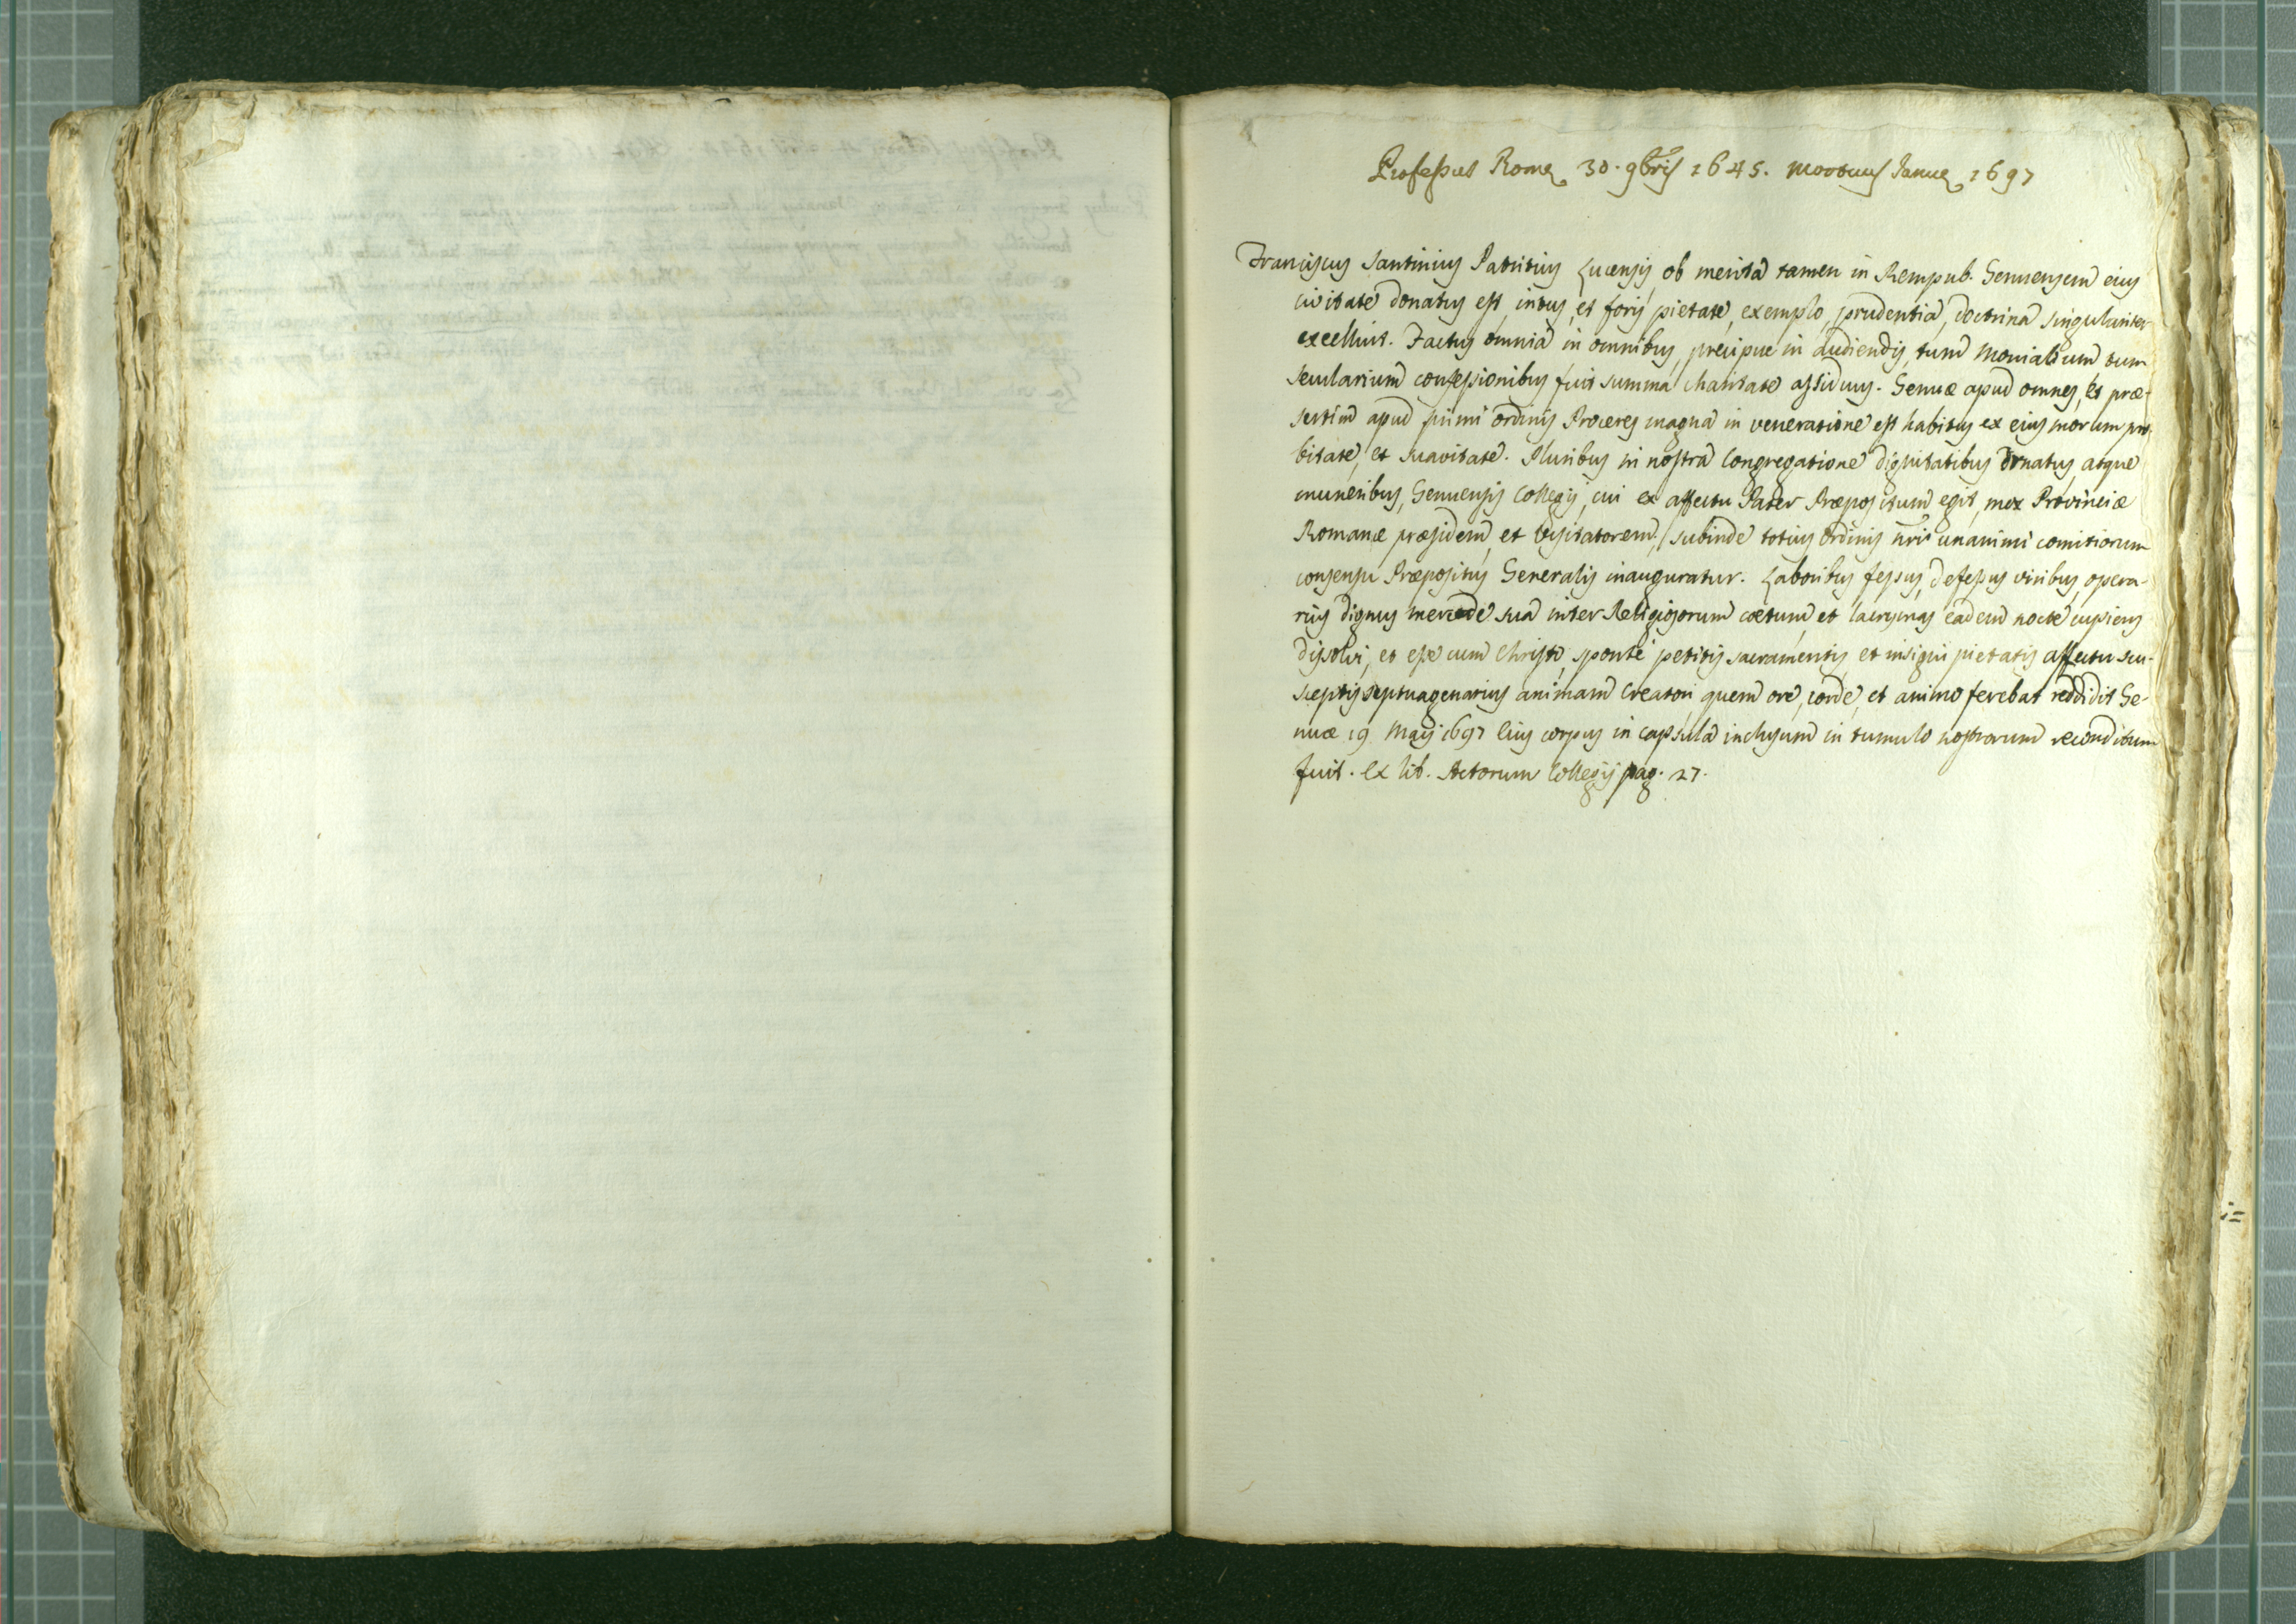 Professus Romę 30. 9bris 1645. mortuus Januę 1697
Franciscus Santinius Patritius Lucensis, ob merita tamen in Rempub. Genuensem eius
civitate donatus est, intus, et foris pietate, exemplo, prudentia, doctrina singulariter
excelluit. Factus omnia in omnibus, precipue in audiendis, tum monialium tum
secularium confessionibus fuit summa charitate assiduus. Genuæ apud omnes, et præ-
sertim apud primi ordinis Proceres magna in veneratione est habitus ex eius morum pro-
bitate, et suavitate. Pluribus in nostra Congregatione dignitatibus ornatus, atque
muneribus, Genuensis Collegij, cui ex affectu Pater Præpositum egit, mox Provinciæ
Romanæ præsidem, et Visitatorem, subinde totius ordinis nri unanimi comitiorum
consensu Præpositus Generalis inauguratur. Laboribus fessus, defessus viribus, opera-
rius dignus mercede sua inter Religiosorum cœtum, et lacrymas eadem nocte cupiens
dissolvi, et esse cum Christo, sponte petitis sacramentis et insigni pietatis affectu su-
sceptis septuagenarius animam Creatori quem ore, corde, et animo ferebat reddidit Ge-
nuæ 19 Maij 1697 Eius corpus in capsula inclusum in tumulo nostrorum reconditum
fuit. Ex lib. Actorum Collegij pag. 27.